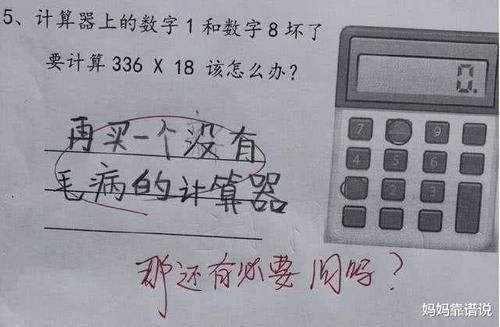 5、计算器上的数字1和数字8坏了
要计算336 X 18 该怎么办?
再买一个没有
毛病的计算器
那还有必要问吗?
0.
7
9
4
5
6
2
3
妈妈靠谱说